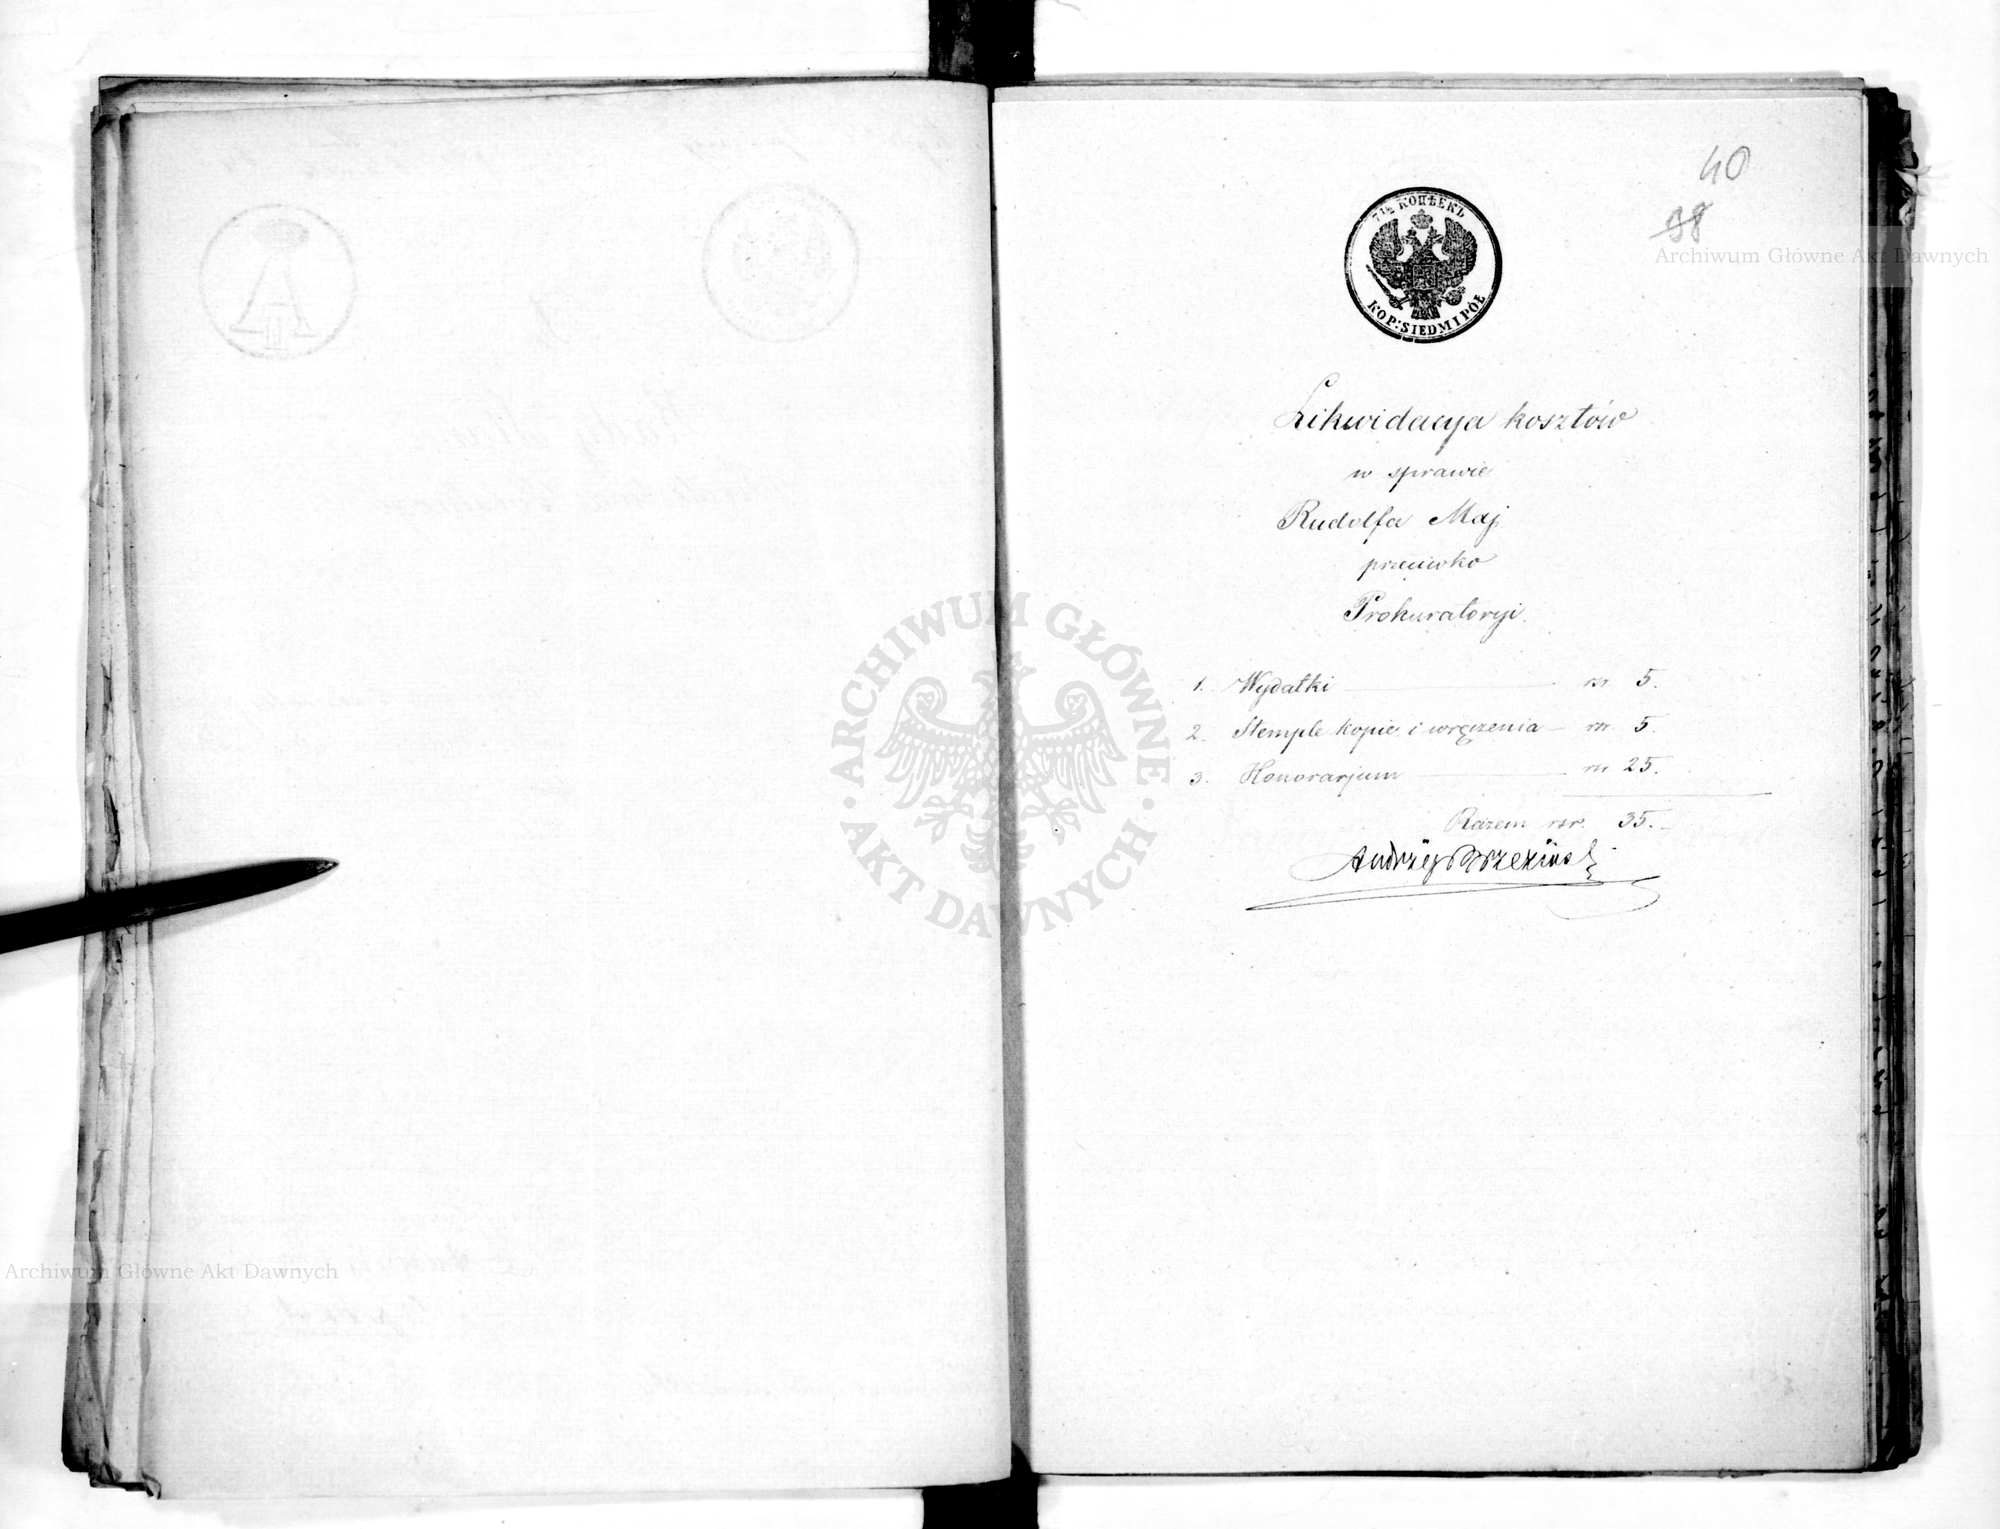 40
38
7½ КОПѢЕКЪ
KOP: SIEDM I PÓŁ
Likwidacya kosztów
w sprawie
Rudolfa Maj
przeciwko
Prokuratoryi
1. Wydatki — rsr 5.
2. Stemple kopie i wręczenia — rsr 5.
3. Honorarjum — rsr 25.
Razem rsr. 35.
Andrzej Brzeziński
ARCHIWUM GŁÓWNE
AKT DAWNYCH
Archiwum Główne Akt Dawnych
Archiwum Główne Akt Dawnych